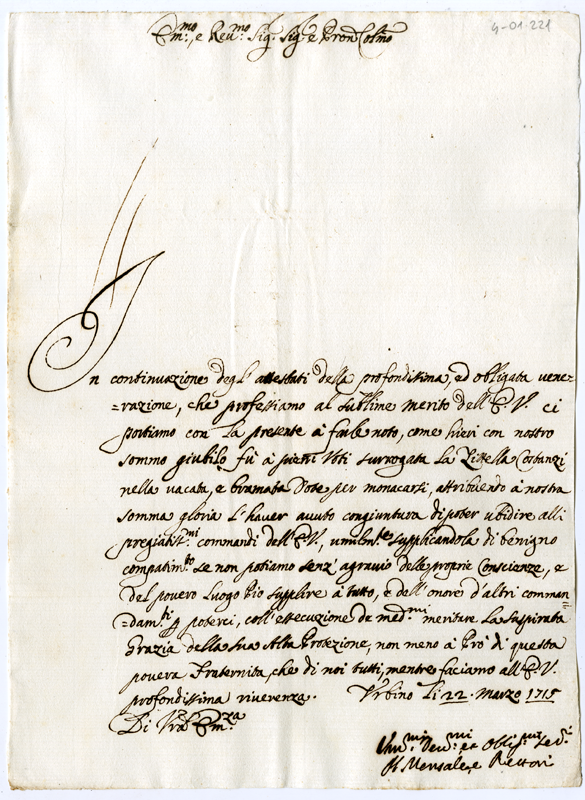 4-01-221
Em.mo, e Rev.mo Sig.r Sig.r e Pron Colmo
In continuazione degl' attestati della profondissima, ed obligata vene=
=razione, che professiamo al sublime merito dell' E. V. ci
portiamo con la presente à farle noto, come hieri con nostro
sommo giubilo fù à pieni Voti surrogata la Zittella Costanzi
nella vacata, e bramata Dote per monacarsi, attribuendo à nostra
somma gloria l' haver avuto congiuntura di poter ubidire alli
pregiatit.mi commandi dell' E. V., umilm.te supplicandola di benigno
compatim.to se non potiamo senz' agravio delle proprie Conscienze, e
del povero Luogo Pio supplire à tutto, e dell' onore d' altri comman=
=dam.ti p poterci, coll' essecuzione de med.mi meritare la suspirata
Grazia della sua Alta Protezione, non meno à Prò di questa
povera Fraternita, che di noi tutti, mentre faciamo all' E. V.
profondissima riverenza. Urbino li 22. Marzo 1715
Di V.ra Em.za
Um.mi Dev.mi et Oblig.mi Ser.i
Il Mensale, e Rettori